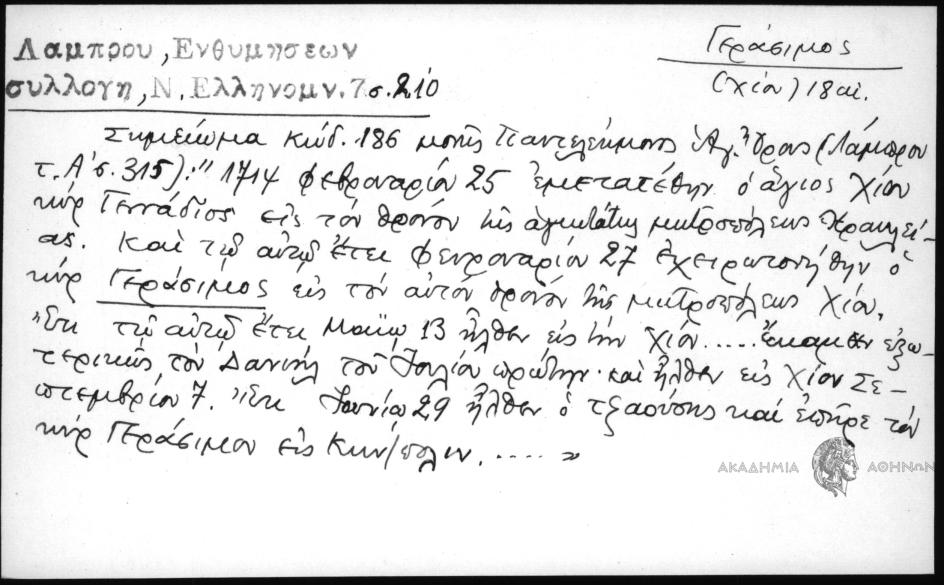 Λαμπρου, Ενθυμησεων
συλλογη, Ν. Ελληνομν. 7 σ. 210
Γεράσιμος
(Χίου) 18 αἰ.
Σημείωμα κώδ. 186 μονῆς Παντελεήμονος Ἁγ. Ὄρους (Λάμπρου
τ. Α' σ. 315): " 1714 φεβρουαρίου 25 ἐμετατέθην ὁ ἅγιος Χίου
κὺρ Γεννάδιος εἰς τὸν θρόνον τῆς ἁγιωτάτης μητροπόλεως Ἡρακλεί-
ας. Καὶ τῷ αὐτῷ ἔτει φευρουαρίου 27 ἐχειρωτονήθην ὁ
κὺρ Γεράσιμος εἰς τὸν αὐτὸν θρόνον τῆς μητροπόλεως Χίου.
τῷ αὐτῷ ἔτει Μαΐῳ 13 ἦλθεν εἰς τὴν Χίον..... Ἔκαμεν ἐξω-
τερικῶς τὸν Δανιὴλ τοῦ Ἰουλίου πρώτην· καὶ ἦλθεν εἰς Χίον Σε-
πτεμβρίου 7. Ἰουνίῳ 29 ἦλθεν ὁ τζαούσης καὶ ἐπῆρε τὸν
κὺρ Γεράσιμον εἰς Κων/πολιν. ..... »
ΑΚΑΔΗΜΙΑ ΑΘΗΝΩΝ